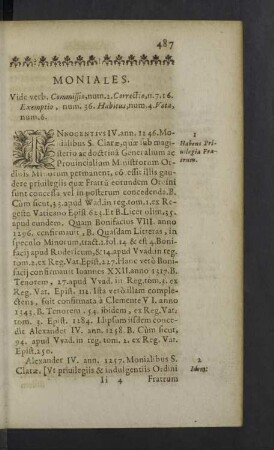 487
MONIALES.
Vide verb. Commissio, num. 2. Correctio, n. 7. 16.
Exemptio, num. 36. Habitus, num. 4. Vota,
num. 6.
INNOCENTIVS IV. ann. 1246. Mo-
nialibus S. Claræ, quæ sub ma-
gisterio ac doctrina Generalium ac
Prouincialium Ministrorum Or-
dinis Minorum permanent, cõcessit illis gau-
dere priuilegiis quæ Fratrũ eorundem Ordini
sunt concessa vel in posterum concedenda. B.
Cùm sicut, 35. apud Wad. in reg. tom. 1. ex Re-
gesto Vaticano Epist. 623. Et B. Licet olim, 55.
apud eondem. Quam Bonifacius VIII. anno
1296. confirmauit, B. Quasdam Litteras, in
speculo Minorum, tract. 1. fol. 14. & est 4. Boni-
facij apud Rodericum, & 14. apud Vvad. in reg.
tom. 2. ex Reg. Vat. Epist. 227. Hanc verò Boni-
facij confirmauit Ioannes XXII. anno 1317. B.
Tenorem, 27. apud Vvad in Reg. tom. 2. ex
Reg. Vat. Epist. 111. Ista verò illam comple-
ctens, fuit confirmata à Clemente VI. anno
1343. B. Tenorem. 54. ibidem, ex Reg. Vat.
tom. 3. Epist. 1284. Idipsum iisdem conce-
dit Alexander IV. ann. 1258. B. Cùm sicut,
94. apud Vvad. in reg. tom. 2. ex Reg. Vat.
Epist. 250.
Alexander IV. ann. 1257. Monialibus S.
Claræ, [Vt priuilegiis & indulgentiis Ordini
Ii 4 Fratrum
1
Habent Pri-
uilegia Fra-
trum.
2
Idem.